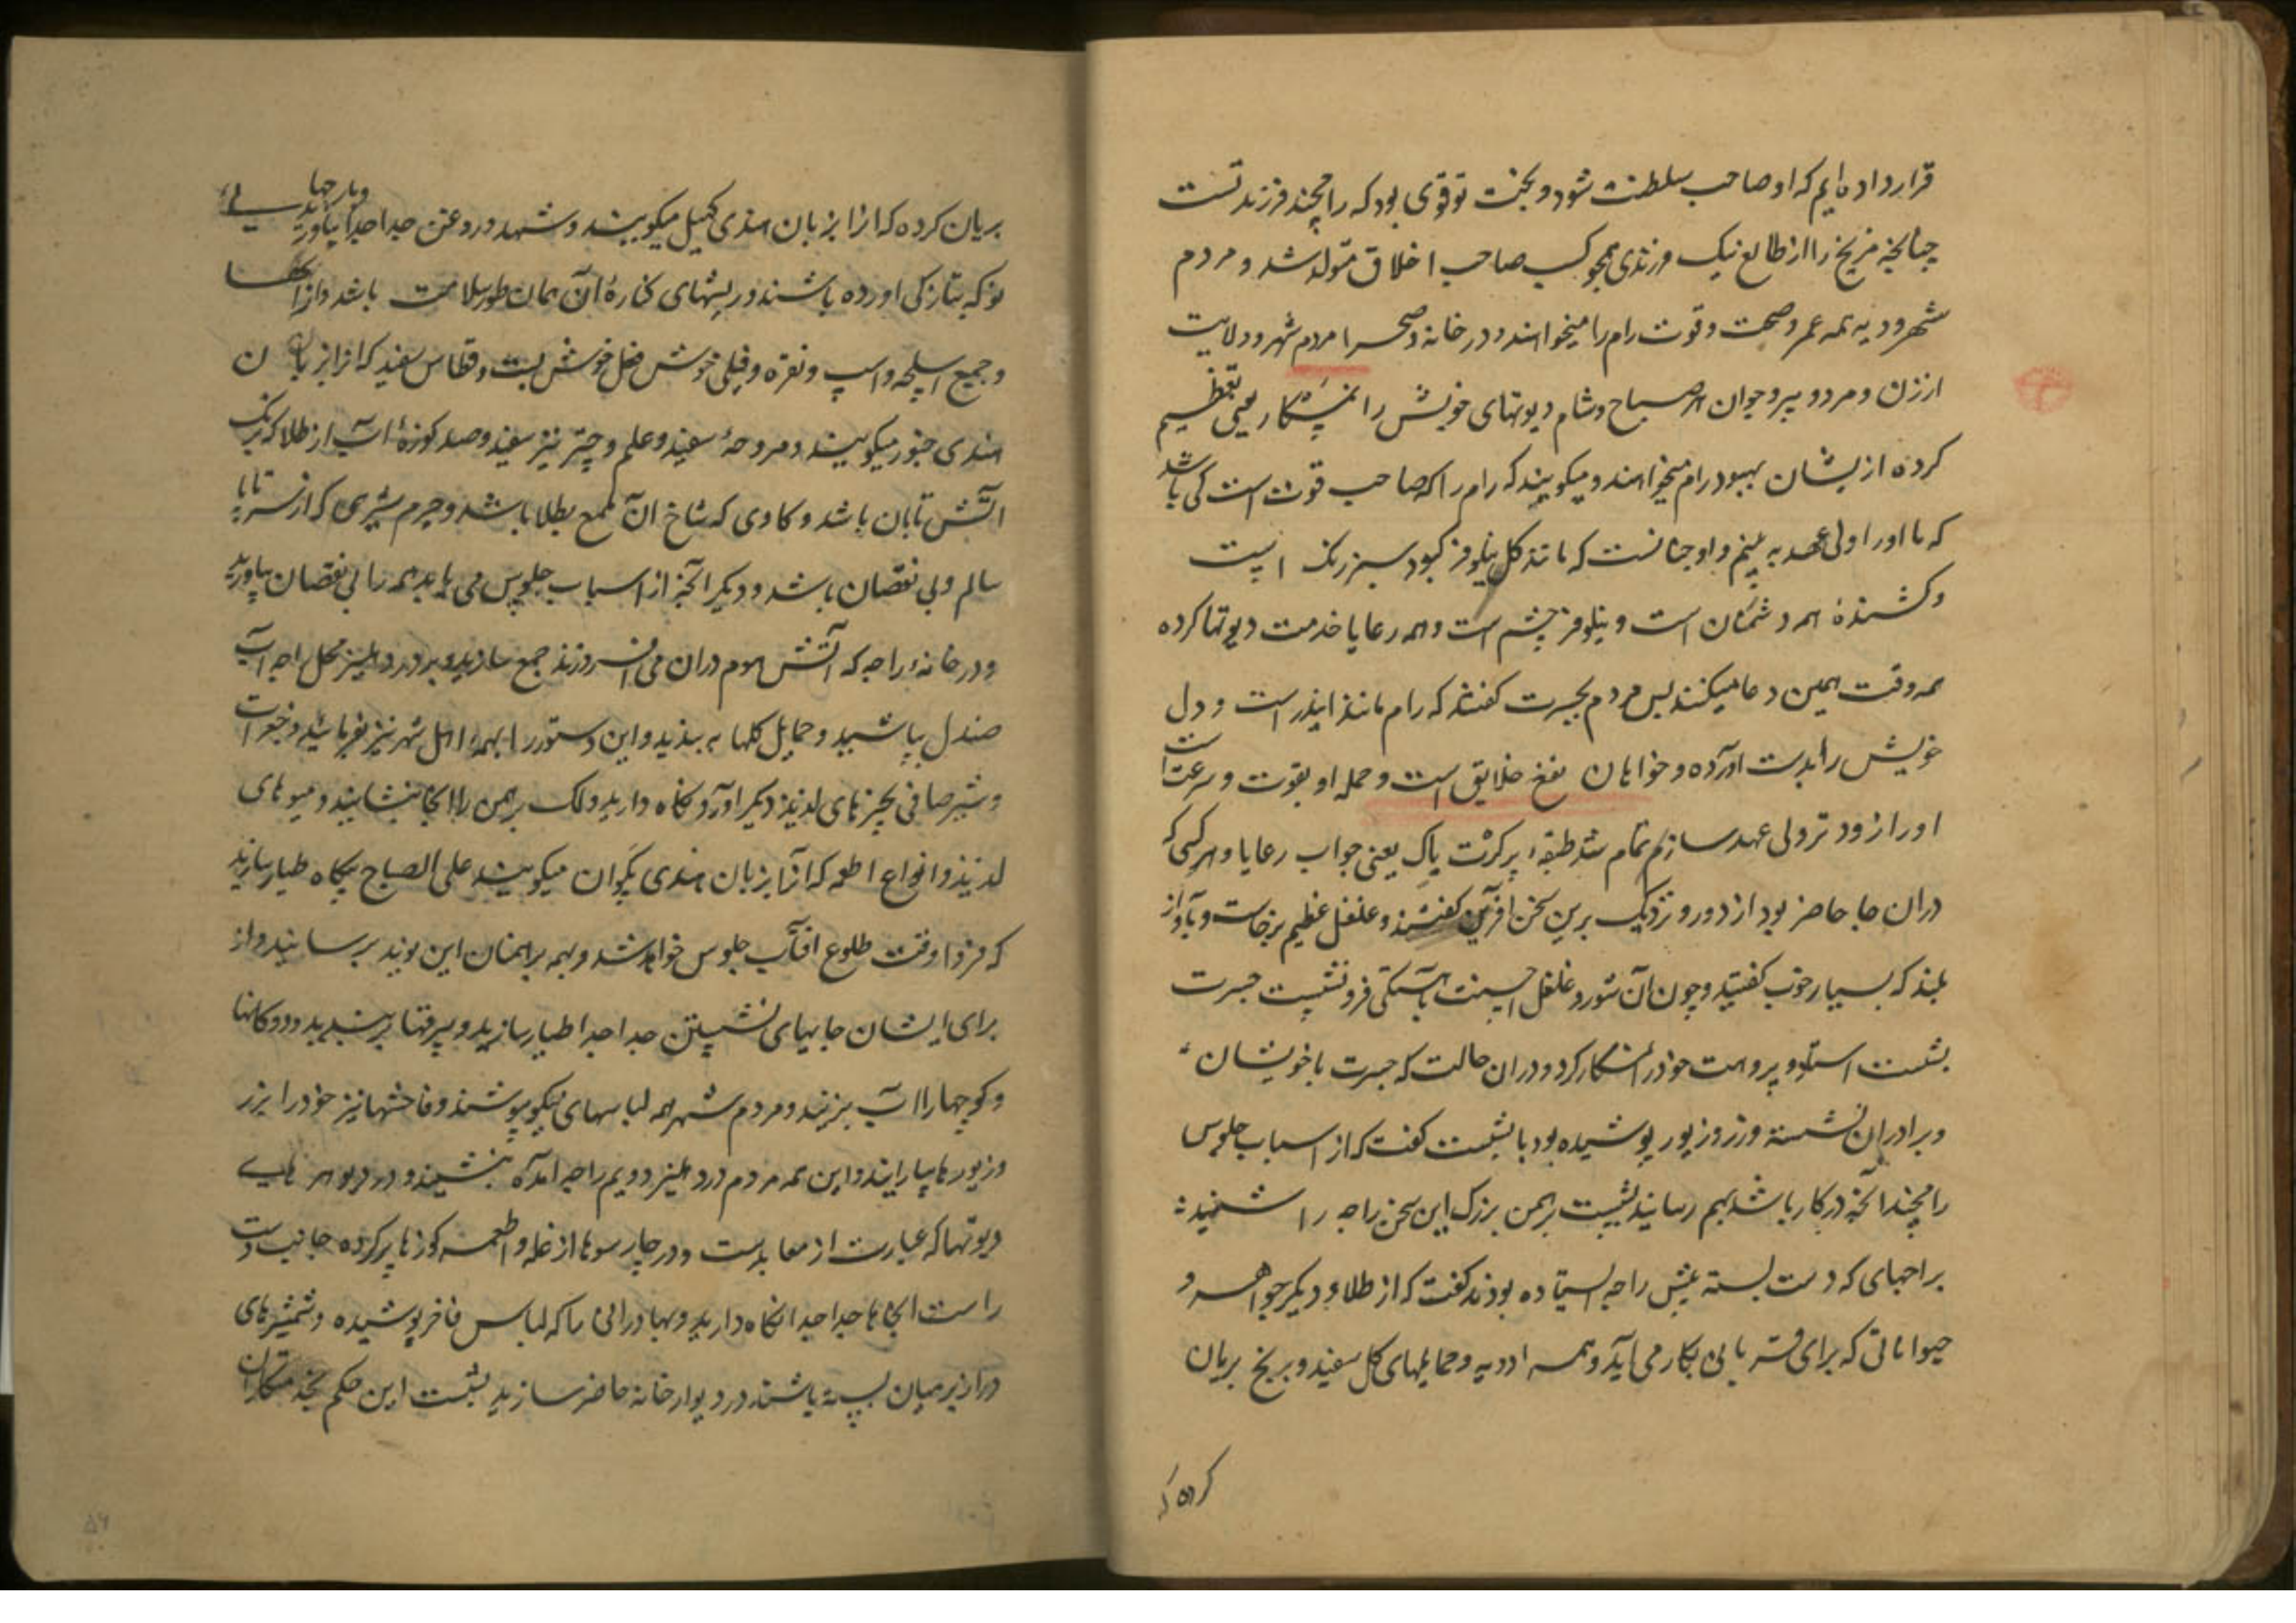 قرار داده ایم که او صاحب سلطنت شود و بخت تو قوی بود که رامچند فرزند تست
چنانچه مریخ را از طالع نیک فرزندی همچو کسب صاحب اخلاق متولد شد و مردم
شهر و دیه همه عمر و صحت و قوت رام را میخواهند و در خانه و صحرا مردم شهر و ولایت
از زن و مرد و پیر و جوان هر صباح و شام دیوتهای خویش را نمشکار یعنی تعظیم
کرده از یشان بهبود رام میخواهند و میگویند که رام را که صاحب قوت است کی باشد
که ما او را ولی عهد به بینیم و او چنانست که مانند گل نیلوفر کبود سبز رنگ است
و کشندهٔ همه دشمنان است و نیلوفر چشم است و همه رعایا خدمت دیوتها کرده
همه وقت همین دعا میکنند پس مردم بجسرت گفتند که رام مانند ایندر است و دل
خویش را بدست آورده و خواهان نفع خلایق است و حمله او بقوت و سرعت است
او را زودتر ولی عهد سازیم تمام شد طبقهٔ پرکرت پاک یعنی جواب رعایا و هر کسی که
دران جا حاضر بود از دور و نزدیک برین سخن آفرین گفتند و غلغل عظیم برخاست و بآواز
بلند که بسیار خوب گفتید و چون آن شور و غلغل باهستگی فرو نشست جسرت
بشست پروهت خود را نمشکار کرد و دران حالت که جسرت با خویشان
و برادران نشسته و زر و زیور پوشیده بود با بشست گفت که از اسباب جلوس
رامچند آنچه در کار باشد بهم رسانید بشست برهمن بزرگ این سخن راجه را شنیده
براجهای که دست بسته پیش راجه ایستاده بودند گفت که از طلا و دیگر جواهر و
حیواناتی که برای قربانی بکار می آید و همه ادویه و حمایلهای گل سفید و برنج بریان
کرده که
بریان کرده که از ا بزبان هندی کهیل میگویند و شهد و روغن جدا جدا بیاورید و پارچها
نو که بتازگی آورده باشند و ریشهای کنارهٔ آن همان طور سلامت باشد و ارابها
و جمیع اسلحه و اسپ و نقره و فیلی خوش فعل خوش بست و قطاس سفید که از ا بزبان
هندی چنور میگویند و مروحهٔ سفید و علم و چتر نیز سفید و صد کوزهٔ آب از طلا که برنگ
آتش تابان باشد و گاوی که شاخ آن ملمع بطلا باشد و چرم شیری که از سر تا پا
سالم و بی نقصان باشد و دیگر آنچه از اسباب جلوس می باید همه را بی نقصان بیاورید
و در خانهٔ راجه که آتش هوم دران می افروزند جمع سازید و بر در دهلیز محل راجه آب
صندل بپاشید و حمایل گلها به بندید و این دستور را بهمهٔ اهل شهر نیز بفرمائید و جغرات
و شیر صافی بچیزهای لذیذ دیگر آورده نگاه دارید و لک برهمن را آنجا بنشانید و میوهای
لذیذ و انواع اطعمه که آنرا بزبان هندی پکوان میگویند علی الصباح پگاه طیار سازید
که فردا وقت طلوع آفتاب جلوس خواهد شد و بهمه برهمنان این نوید برسانید و از
برای ایشان جایهای نشستن جدا جدا طیار سازید و بیرقها بربندید و دوکانها
و کوچها را آب بزنند و مردم شهر همه لباسهای نیکو بپوشند و فاحشها نیز خود را بزر
و زیورها بیارایند و این همه مردم در دهلیز دویم راجه آمده بنشینند و در دیوهرهای
دیوتها که عبارت از معابدست و در چارسوها از غله و اطعمه کوزها پر کرده جانب دست
راست آنجاها جدا جدا نگاه دارید و بهادرانی را که لباس فاخر پوشیده و شمشیرهای
دراز بر میان بسته باشند در دیوارخانه حاضر سازید بشست این حکم بخدمتکاران
۵۶